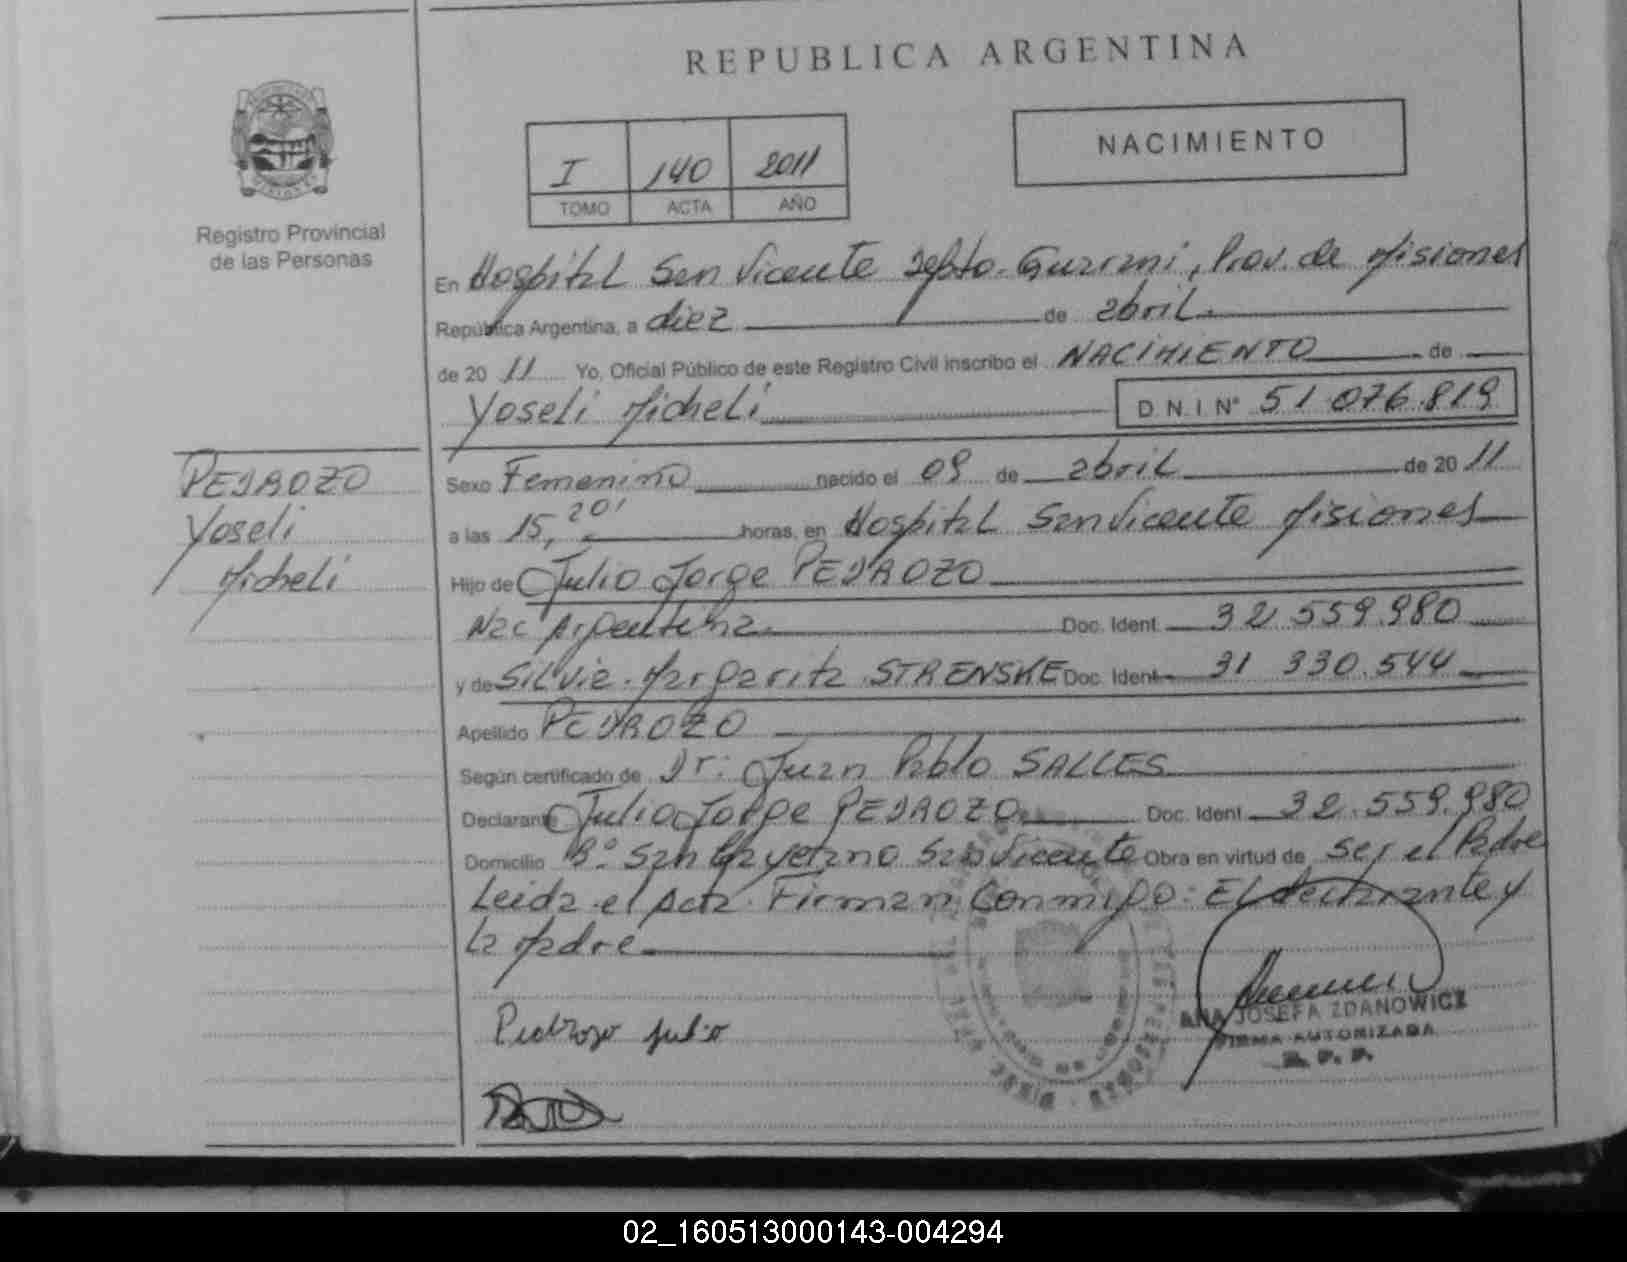 REPUBLICA ARGENTINA
Registro Provincial
de las Personas
I 140 2011
TOMO ACTA AÑO
NACIMIENTO
En Hospital San Vicente Depto. Guarani, Prov. de Misiones
República Argentina, a diez de abril
de 2011 Yo, Oficial Público de este Registro Civil inscribo el NACIMIENTO de
Yoseli Micheli D.N.I.Nº 51.076.819
PEDROZO
Yoseli
Micheli
Sexo Femenino nacido el 09 de abril de 2011
a las 15, 20' horas, en Hospital San Vicente Misiones
Hijo de Julio Jorge PEDROZO
Nac Argentina Doc. Ident. 32.559.980
y de Silvia Margarita STRENSKE Doc. Ident. 31 330.544
Apellido PEDROZO
Según certificado de Dr: Juan Pablo SALLES
Declarante Julio Jorge PEDROZO Doc. Ident. 32.559.980
Domicilio Bº San Cayetano San Vicente Obra en virtud de ser el Padre
Leida el Acta Firman Conmigo: El declarante y
la Madre
Pedrozo Julio
ANA JOSEFA ZDANOWICZ
FIRMA AUTORIZADA
R. P. P.
02_160513000143-004294